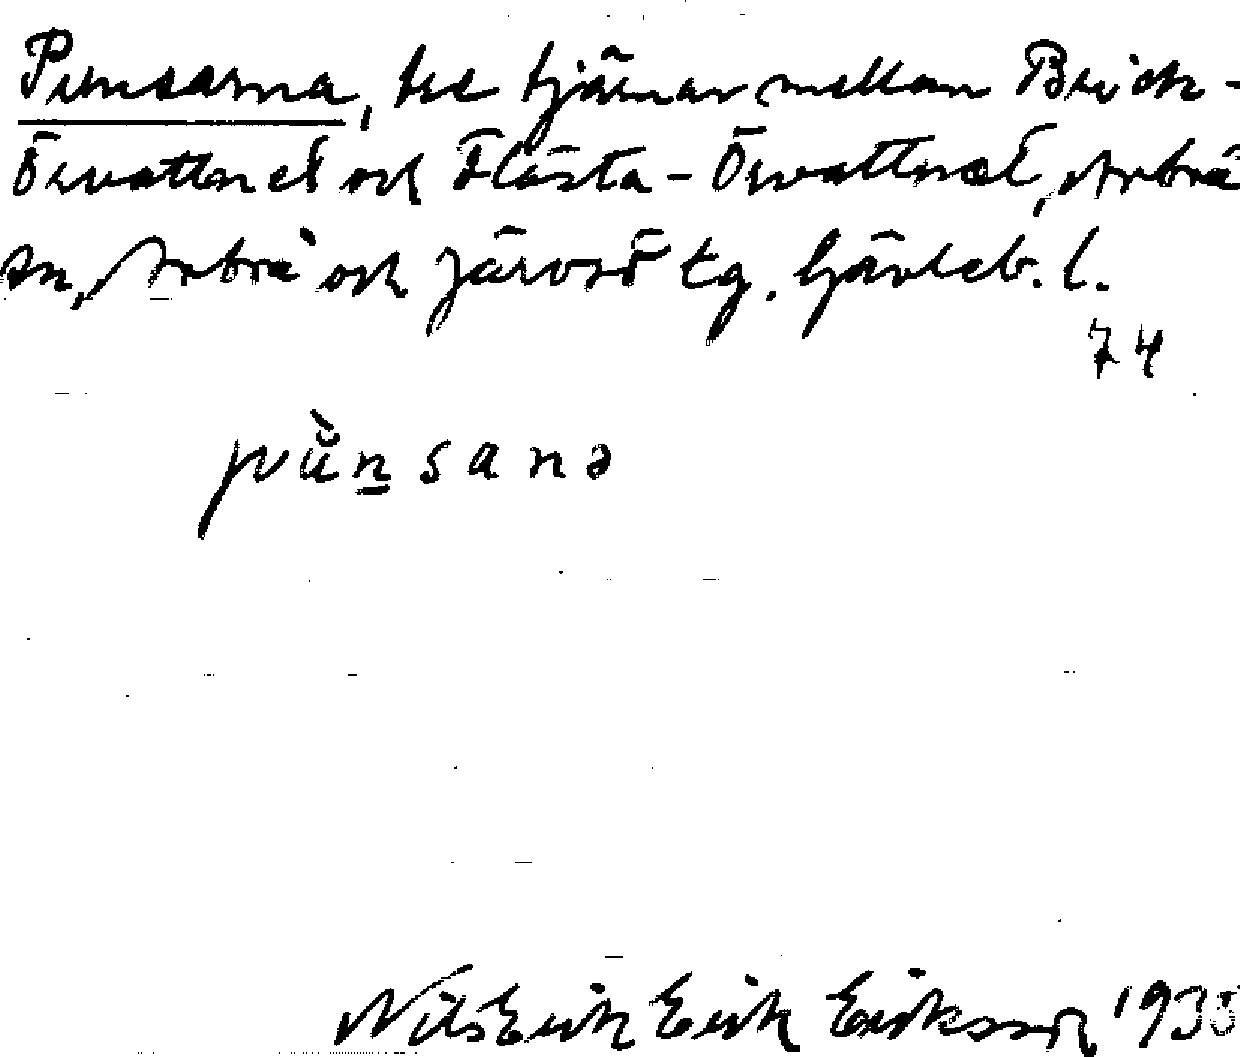 Punsarna, tre tjärnar mellan Brick-
Övvattnet och Flästa-Övvattnet, Arbrå
sn, Arbrå och Järvsö tg. Gävleb. l.
74
pùn̲sanə
Nils Erik Erik Eriksson 1935